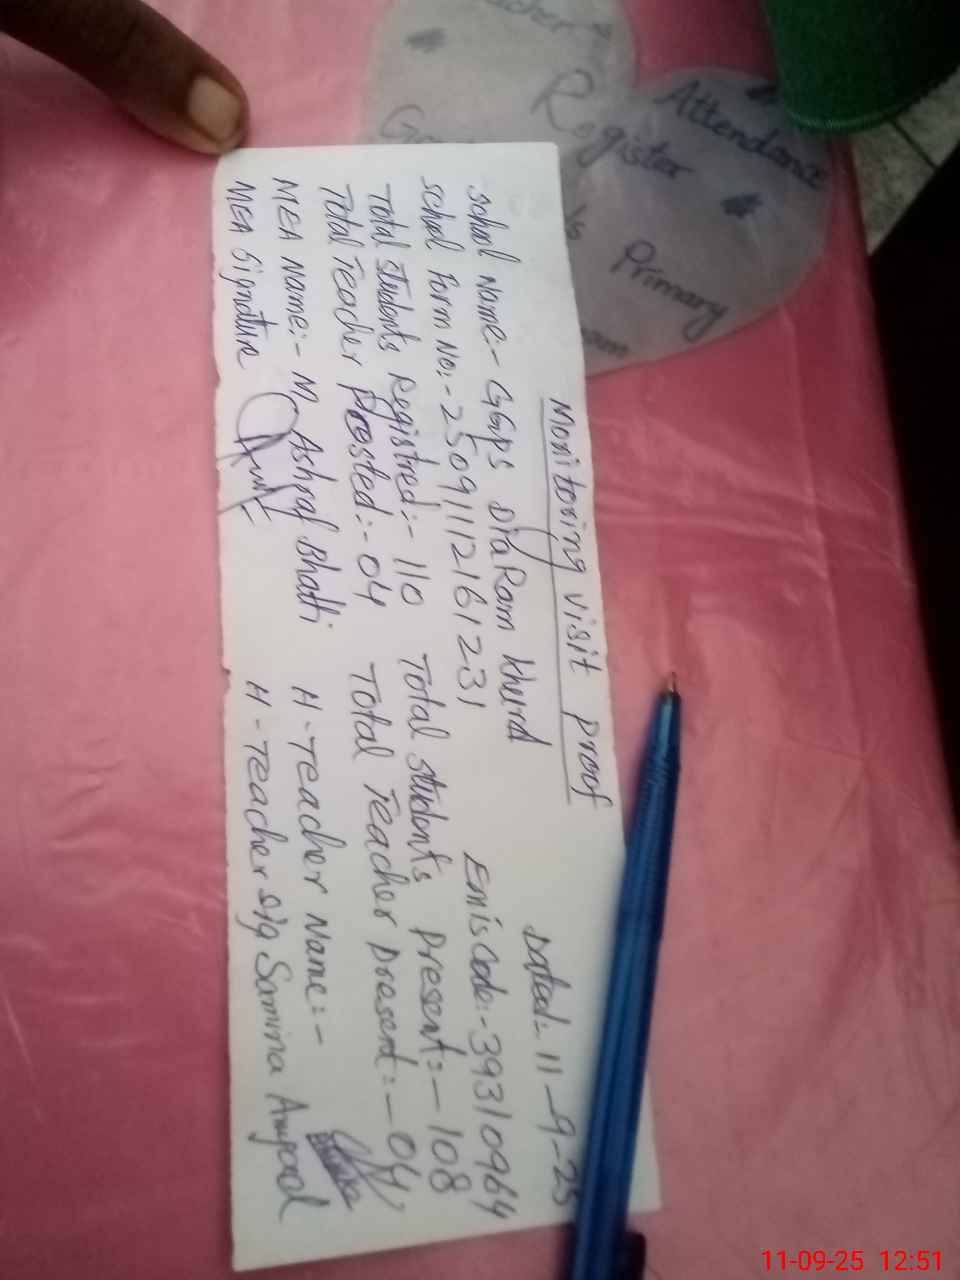 Teacher's
Attendance
Register
Primary
Monitoring visit proof
Dated:- 11-9-25
School Name:- GGPS DiaRam Khurd
School Form No:- 25091112161231 Emis Code:- 39310964
Total Students Registred:- 110 Total Students Present:- 108
Total Teacher Posted:- 04 Total Teacher present:- 04
MEA Name:- M Ashraf Bhatti H-Teacher Name:-
MEA Signature H-Teacher sig Samina
11-09-25 12:51